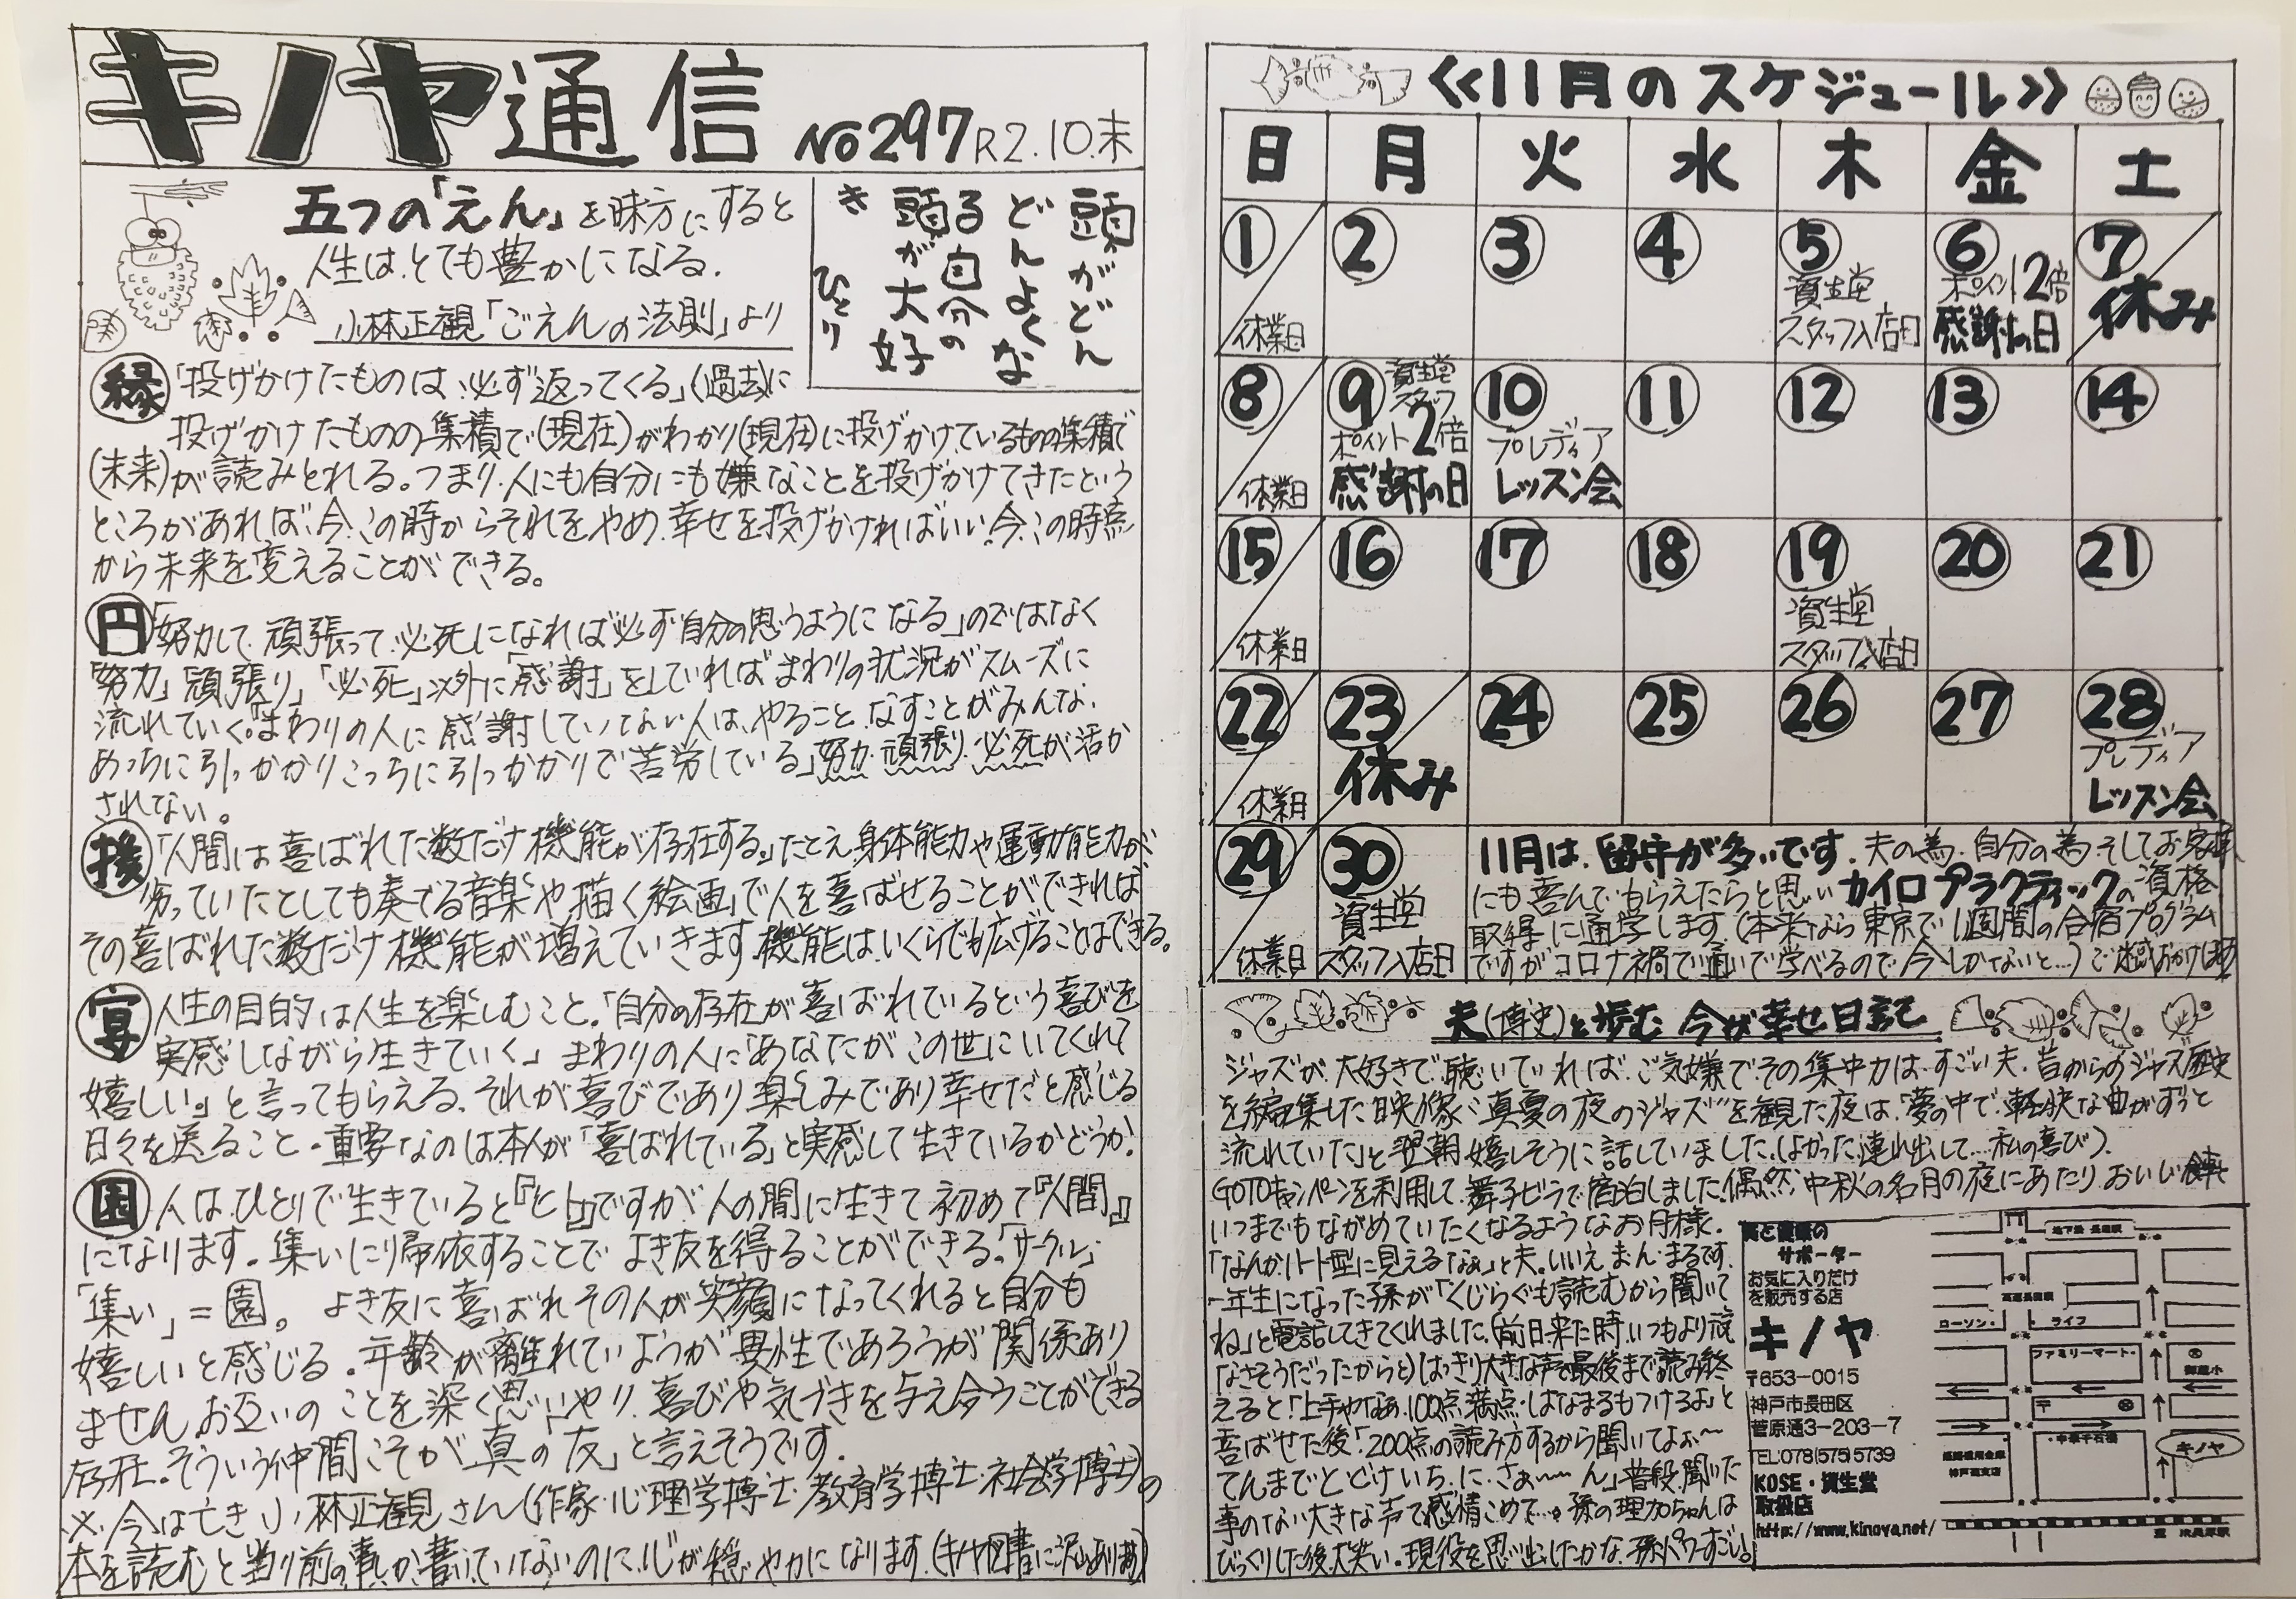 キノヤ通信 No297 R2.10.末
五つの「えん」を味方にすると
人生は、とても豊かになる.
小林正観「ごえんの法則」より
頭がどん
どんよくな
る自分の
頭が大好
き
ひとり
縁「投げかけたものは、必ず返ってくる」(過去)に
投げかけたものの集積で(現在)がわかり(現在)に投げかけているものの集積で
(未来)が読みとれる。つまり、人にも自分にも嫌なことを投げかけてきたという
ところがあれば、今、この時からそれをやめ、幸せを投げかければいい!今、この時点
から未来を変えることができる。
円「努力して、頑張って、必死になれば必ず自分の思うようになる」のではなく
「努力」「頑張り」「必死」以外に「感謝」をしていればまわりの状況がスムーズに
流れていく。「まわりの人に感謝していない人は、やること、なすことがみんな、
あっちに引っかかりこっちに引っかかりで苦労している」努力、頑張り、必死が活か
されない。
援「人間は喜ばれた数だけ機能が存在する。」たとえ、身体能力や運動能力が
劣っていたとしても奏でる音楽や描く絵画で人を喜ばせることができれば
その喜ばれた数だけ機能が増えていきます。機能は、いくらでも広げることはできる。
宴 人生の目的は人生を楽しむこと。「自分の存在が喜ばれているという喜びを
実感しながら生きていく」まわりの人に「あなたがこの世にいてくれて
嬉しい。」と言ってもらえる、それが喜びであり楽しみであり幸せだと感じる
日々を送ること・重要なのは、本人が「喜ばれている」と実感して生きているかどうか!
園 人は、ひとりで生きていると『ヒト』ですが、人の間に生きて初めて『人間』
になります。集いに帰依することで、よき友を得ることができる。「サークル」
「集い」=園。よき友に喜ばれその人が笑顔になってくれると自分も
嬉しいと感じる。年齢が離れていようが異性であろうが関係あり
ませんお互いのことを深く思いやり、喜びや気づきを与え合うことができる
存在。そういう仲間こそが「真の友」と言えそうです.
※今は亡き小林正観さん(作家・心理学博士・教育学博士・社会学博士)の
本を読むと当り前の事しか書いていないのに、心が穏やかになります。
《11月のスケジュール》
日 月 火 水 木 金 土
1 2 3 4 5 6 7
休業日 資生堂スタッフ入店日 ポイント2倍感謝の日 休み
8 9 10 11 12 13 14
休業日 資生堂スタッフ ポイント2倍感謝の日 プレディアレッスン会
15 16 17 18 19 20 21
休業日 資生堂スタッフ入店日
22 23 24 25 26 27 28
休業日 休み プレディアレッスン会
29 30
休業日 資生堂スタッフ入店日
11月は、留守が多いです。夫の為、自分の為、そしてお客様
にも喜んでもらえたらと思いカイロプラクティックの資格
取得に通学します。(本来なら東京で1週間の合宿プログラム
ですがコロナ禍で通いで学べるので今しかないと…)
夫(博史)と歩む 今が幸せ日記
ジャズが大好きで、聴いていれば、ご気嫌でその集中力は、すごい夫、昔からのジャズ歴史
を編集した映像“真夏の夜のジャズ”を観た夜は、「夢の中で、軽快な曲がずっと
流れていた」と翌朝、嬉しそうに話していました。(よかった、連れ出して…私の喜び)
GOTOキャンペーンを利用して、舞子ビラで宿泊しました。偶然、中秋の名月の夜にあたり、おいしい食事と
いつまでもながめていたくなるようなお月様.
「なんか、ハート型に見えるなぁ」と夫。いいえ、まん、まるです。
一年生になった孫が「くじらぐも読むから聞いて
ね」と電話してきてくれました。(前日来た時、いつもより元
気なさそうだったからと)はっきり大きな声で最後まで読み終
えると「上手やなぁ、100点満点・はなまるもつけるよ」と
喜ばせた後「200点の読み方するから聞いてよぉ〜
てんまでとどけ、いち、に、さぁ〜〜ん」普段、聞いた
事のない大きな声で感情こめて…。孫の理加ちゃんは
びっくりした後、大笑い。現役を思い出したかな、孫パワーすごい!
美と健康の
サポーター
お気に入りだけ
を販売する店
キノヤ
〒653-0015
神戸市長田区
菅原通3-203-7
TEL078(575)5739
KOSE・資生堂
取扱店
http://www.kinoya.net/
地下鉄 長田駅
高速長田駅
ローソン・ ・ライフ
ファミリーマート・
御蔵小
キノヤ